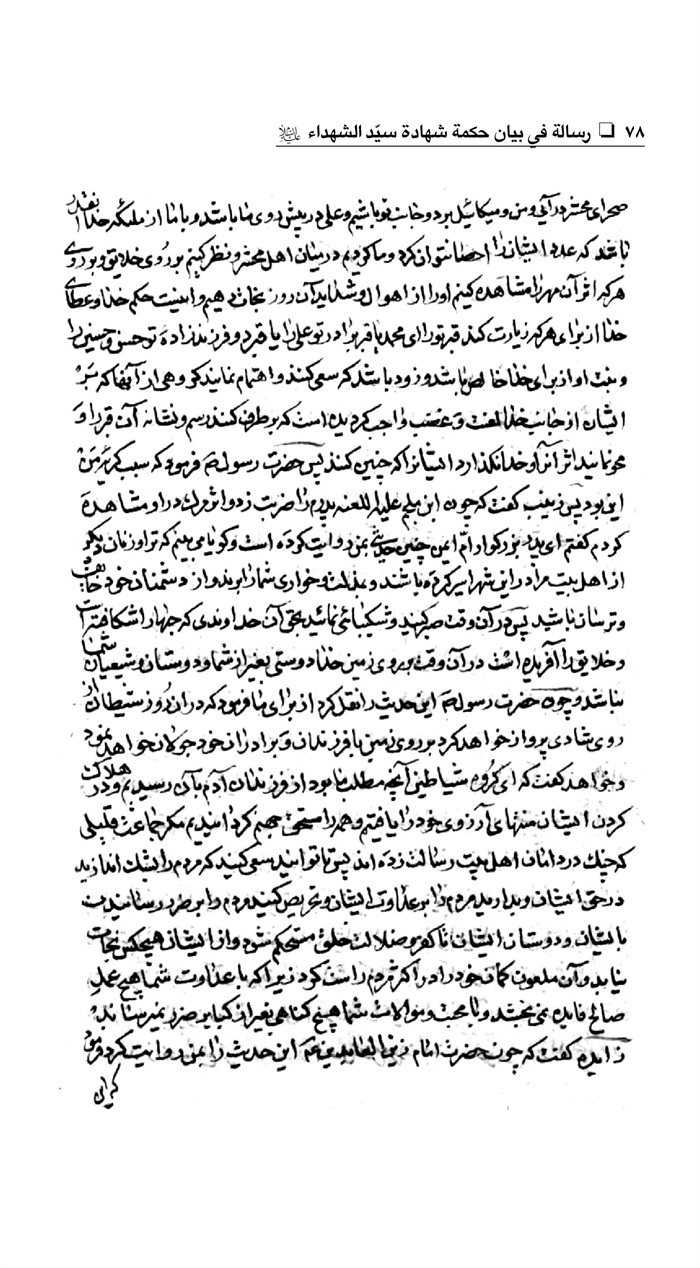 ٧٨ ❑ رسالة في بيان حكمة شهادة سيّد الشهداء
صحرای محشر درآئی و من و میکائیل بر دو جانب تو باشیم و علی در پیش روی ما باشد و با ما از ملئکه خدا آنقدر
باشد که عدد ایشان را احصا نتوان کرد و ما گردیم در میان اهل محشر و نظر کنیم بر روی خلایق و بر روی
هر که اثر آن مهر را مشاهده کنیم او را از اهوال و شداید آن روز نجات دهیم و اینست حکم خدا و عطای
خدا از برای هر که زیارت کند قبر تو را ای محمد یا قبر برادر تو علی را یا قبر دو فرزند زادهٔ تو حسن و حسین را
و نیت او از برای خدا خالص باشد و زود باشد که سعی کنند و اهتمام نمایند گروهی از آنها که بر
ایشان از جانب خدا لعنت و غضب واجب گردیده است که برطرف کنند رسم و نشانه آن قبر را و
محو نمایند اثر آنرا و خدا نگذارد ایشانرا که چنین کنند پس حضرت رسول صم فرمود که سبب گریهٔ من
این بود پس زینب گفت که چون ابن ملجم علیه اللعنه پدرم را ضربت زد و اثر مرگ در او مشاهده
کردم گفتم ای پدر بزرگوار ام ایمن چنین حدیثی بمن روایت کرده است و گویا می بینم که ترا و زنان دیگر
از اهل بیت مرا در این شهر اسیر کرده باشند و بمذلت و خواری شما را برند و از دشمنان خود خایف
و ترسان باشید پس در آن وقت صبر کنید و شکیبائی نمائید بحق آن خداوندی که حبها را شکافته است
و خلایق را آفریده است در آن وقت بر روی زمین خدا دوستی بغیر از شما و دوستان و شیعیان شما
نباشد و چون حضرت رسول صم این حدیث را نقل کرد از برای ما فرمود که در آن روز شیطان از
روی شادی پرواز خواهد کرد بر روی زمین با فرزندان و برادران خود جولان خواهد نمود
و خواهد گفت که ای گروه شیاطین آنچه مطلب ما بود از فرزندان آدم بآن رسیدیم و در هلاک
کردن ایشان منتهای آرزوی خود را یافتیم و همه را مستحق جهنم گردانیدیم مگر جماعت قلیلی
که چنگ در دامان اهل بیت رسالت زده اند پس تا توانید سعی کنید که مردم را بشک اندازید
در حق ایشان و بدارید مردم را بر عداوت ایشان و تحریص کنید مردم را بر ضرر رسانیدن
بایشان و دوستان ایشان تا کفر و ضلالت خلق مستحکم شود و از ایشان هیچکس نجات
نیابد و آن ملعون گمان خود را در اکثر مردم راست کرد زیرا که با عداوت شما هیچ عمل
صالح فایده نمی بخشد و با محبت و موالات شما هیچ گناهی بغیر از کبایر ضرر نمیرساند
زایده گفت که چون حضرت امام زین العابدین عم این حدیث را بمن روایت کرد فرمود